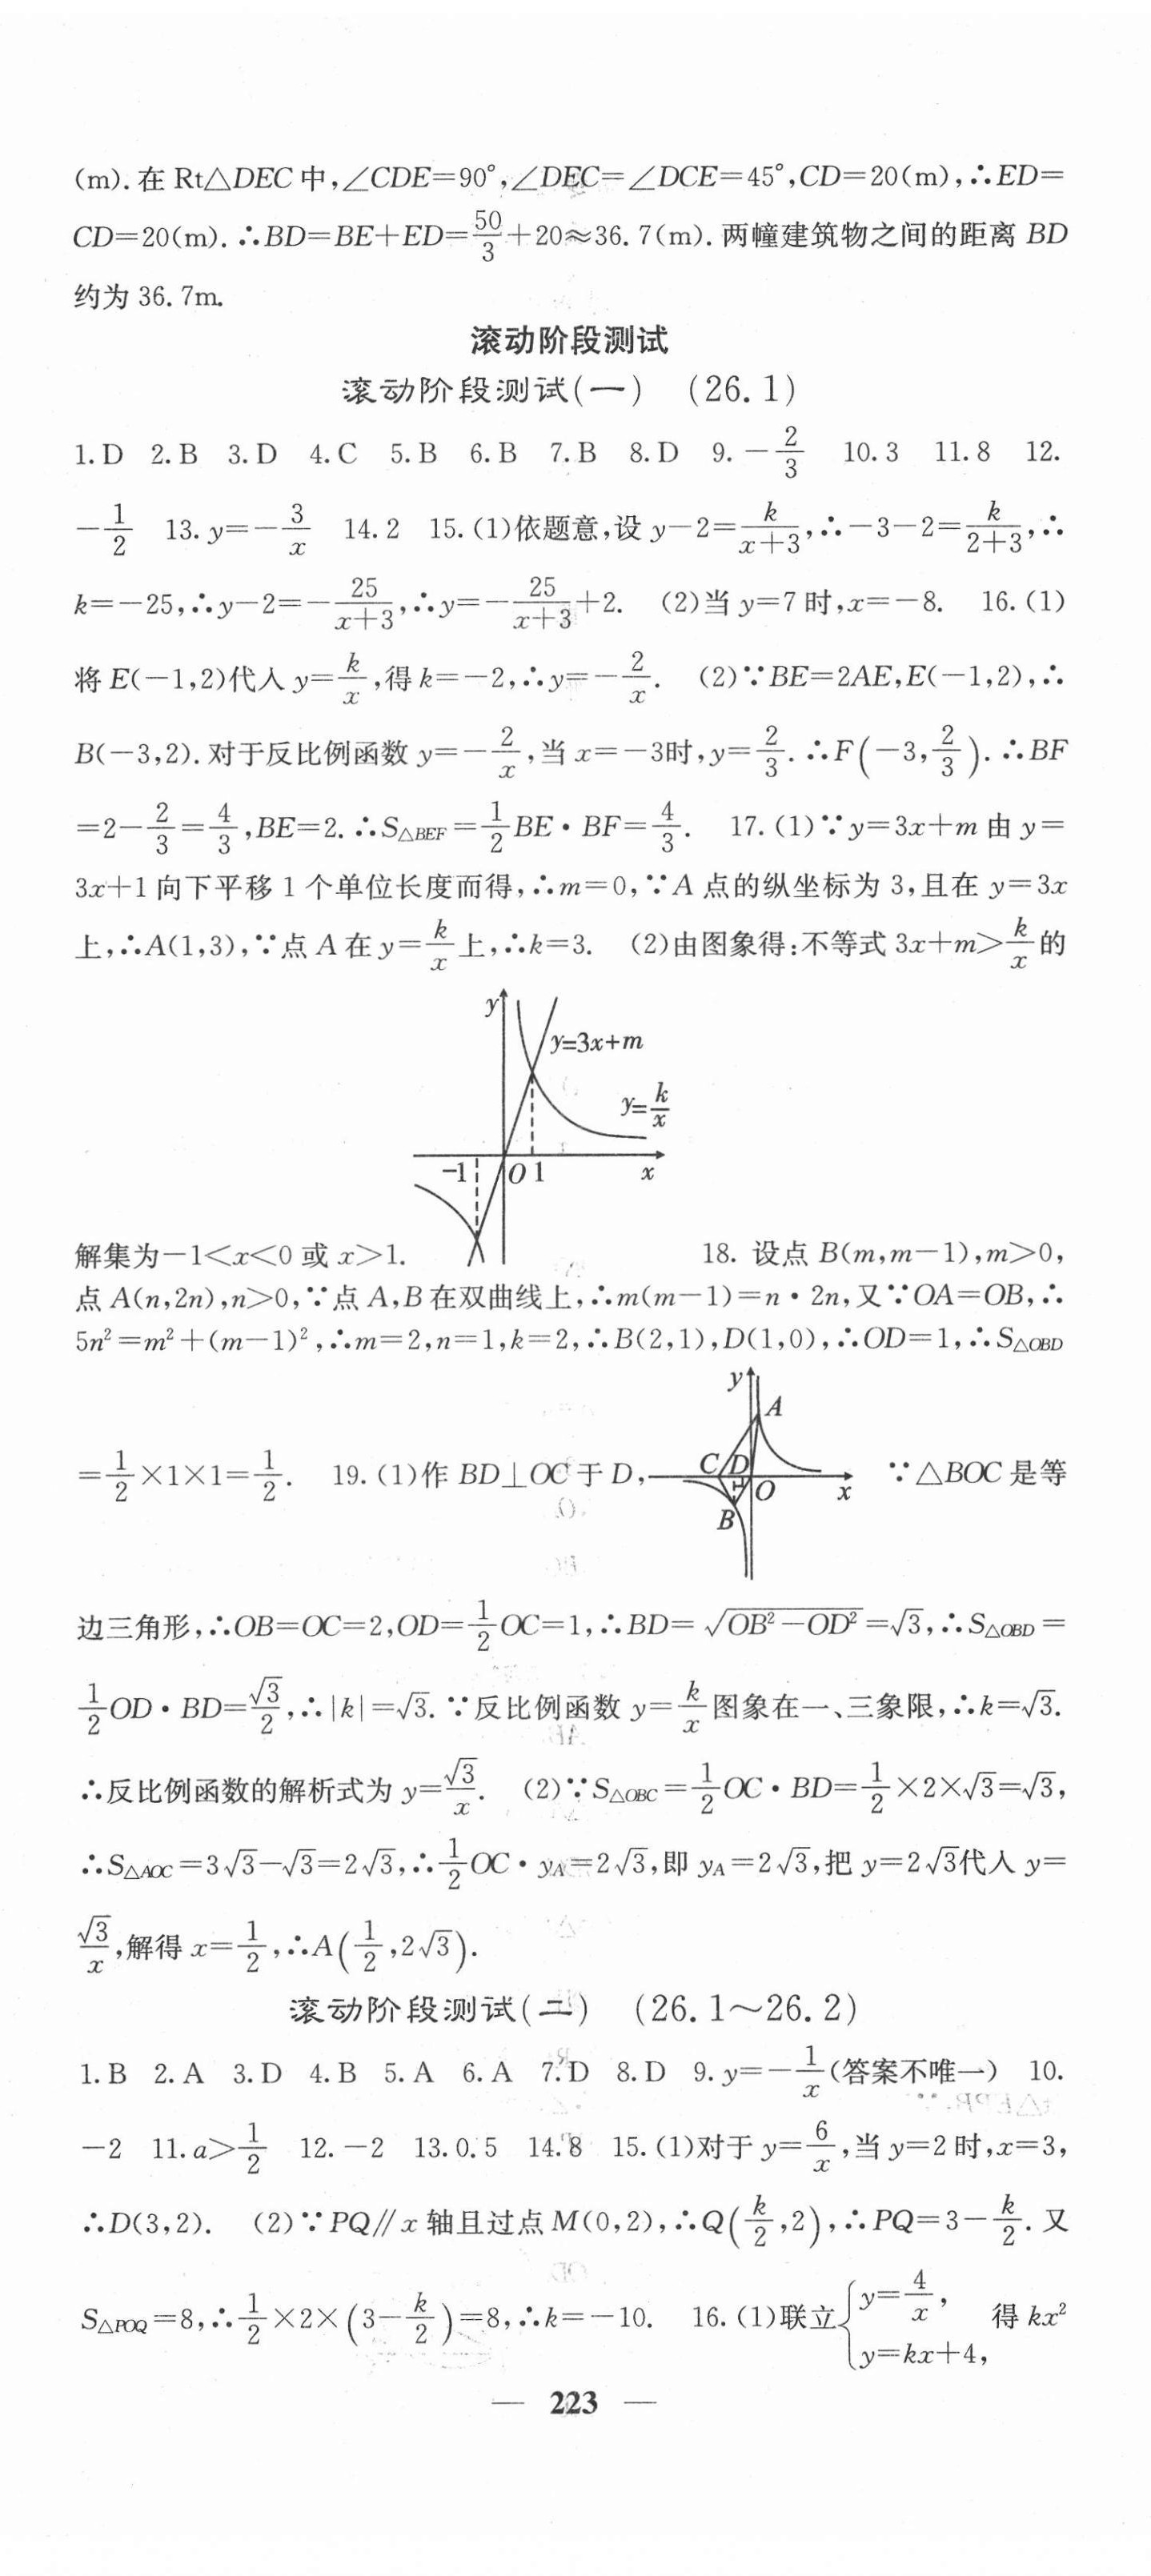 (m). 在 Rt△DEC 中,∠CDE=90°,∠DEC=∠DCE=45°,CD=20(m),∴ED=
CD=20(m). ∴BD=BE+ED=50/3+20≈36.7(m). 两幢建筑物之间的距离 BD
约为 36.7m.
滚动阶段测试
滚动阶段测试(一) (26.1)
1.D 2.B 3.D 4.C 5.B 6.B 7.B 8.D 9.-2/3 10.3 11.8 12.
-1/2 13. y=-3/x 14.2 15.(1)依题意,设 y-2=k/(x+3),∴-3-2=k/(2+3),∴
k=-25,∴y-2=-25/(x+3),∴y=-25/(x+3)+2. (2)当 y=7 时,x=-8. 16.(1)
将 E(-1,2)代入 y=k/x,得 k=-2,∴y=-2/x. (2)∵BE=2AE,E(-1,2),∴
B(-3,2). 对于反比例函数 y=-2/x,当 x=-3时,y=2/3. ∴F(-3,2/3). ∴BF
=2-2/3=4/3,BE=2. ∴S△BEF=1/2BE·BF=4/3. 17.(1)∵y=3x+m 由 y=
3x+1 向下平移 1 个单位长度而得,∴m=0,∵A 点的纵坐标为 3,且在 y=3x
上,∴A(1,3),∵点 A 在 y=k/x上,∴k=3. (2)由图象得:不等式 3x+m>k/x的
y
y=3x+m
y=k/x
-1 O 1 x
解集为-1<x<0 或 x>1. 18. 设点 B(m,m-1),m>0,
点 A(n,2n),n>0,∵点 A,B 在双曲线上,∴m(m-1)=n·2n,又∵OA=OB,∴
5n²=m²+(m-1)²,∴m=2,n=1,k=2,∴B(2,1),D(1,0),∴OD=1,∴S△OBD
y
A
=1/2×1×1=1/2. 19.(1)作 BD⊥OC 于 D, C D O x ∵△BOC 是等
B
边三角形,∴OB=OC=2,OD=1/2OC=1,∴BD=√(OB²-OD²)=√3,∴S△OBD=
1/2OD·BD=√3/2,∴|k|=√3. ∵反比例函数 y=k/x图象在一、三象限,∴k=√3.
∴反比例函数的解析式为 y=√3/x. (2)∵S△OBC=1/2OC·BD=1/2×2×√3=√3,
∴S△AOC=3√3-√3=2√3,∴1/2OC·yA=2√3,即 yA=2√3,把 y=2√3代入 y=
√3/x,解得 x=1/2,∴A(1/2,2√3).
滚动阶段测试(二) (26.1～26.2)
1.B 2.A 3.D 4.B 5.A 6.A 7.D 8.D 9. y=-1/x(答案不唯一) 10.
-2 11. a>1/2 12.-2 13.0.5 14.8 15.(1)对于 y=6/x,当 y=2 时,x=3,
∴D(3,2). (2)∵PQ∥x 轴且过点 M(0,2),∴Q(k/2,2),∴PQ=3-k/2. 又
S△POQ=8,∴1/2×2×(3-k/2)=8,∴k=-10. 16.(1)联立{y=4/x, y=kx+4, 得 kx²
— 223 —